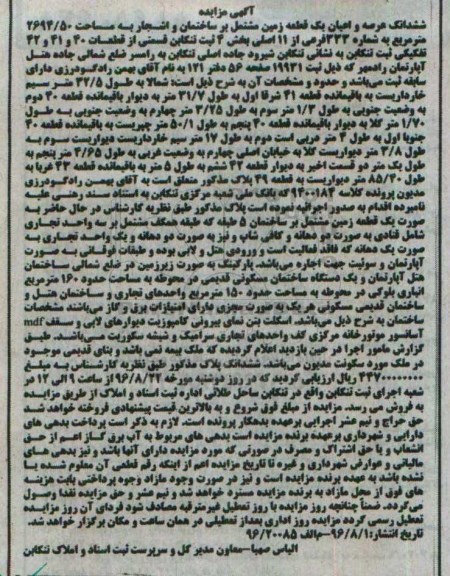 آگهی مزایده
ششدانگ عرصه و اعیان یک قطعه زمین مشتمل بر ساختمان و اشجار به مساحت ۲۶۹۴/۵۰
مترمربع به شماره ۳۳۳فرعی از ۱۱ اصلی بخش ۳ ثبت تنکابن قسمتی از قطعات ۴۰ و ۴۱ و ۴۲
تفکیکی ثبت تنکابن به نشانی تنکابن شیرود جاده اصلی تنکابن به رامسر ضلع شمالی جاده هتل
آپارتمان رادمهر که ذیل ثبت ۱۹۹۳۱ صفحه ۵۶ دفتر ۱۲۱ به نام آقای بهمن رادگودرزی دارای
سابقه ثبت می‌باشد و حدود و مشخصات آن به شرح ذیل است: شمالا به طول ۴۲/۵ متر سیم
خارداریست به باقیمانده قطعه ۴۱ شرقا اول به طول ۳۱/۷ متر به دیوار باقیمانده قطعه ۴۰ دوم
به وضعیت جنوبی به طول ۱/۳ متر سوم به طول ۳/۲۵ متر چهارم به وضعیت جنوبی به طول
۱/۷۰ متر کلا به دیوار باقیمانده قطعه ۴۰ پنجم به طول ۵۰/۱ متر چپریست به باقیمانده قطعه ۴۰
جنوبا اول به طول ۴ متر دربی است دوم به طول ۱۷ متر سیم خارداریست دیواریست سوم به
طول ۳/۸ متر دیواریست کلا به خیابان اصلی چهارم به وضعیت غربی به طول ۴/۶۵ متر پنجم به
طول یک متر دو قسمت اخیر به دیوار قطعه ۴۳ ششم به طول ۵ متر به باقیمانده قطعه ۴۳ غربا به
طول ۸۵/۳۰ متر دیواریست به قطعه ۳۹ پلاک مذکور متعلق است به آقای بهمن رادگودرزی
مدیون پرونده کلاسه ۹۴۰۰۱۸۴ که بانک ملی شعبه مرکزی تنکابن به استناد سند رهنی علیه
نامبرده اقدام به صدور اجرائیه نموده است پلاک مذکور طبق نظریه کارشناس در حال حاضر به
صورت یک قطعه زمین مشتمل بر ساختمان ۵ طبقه که طبقه همکف مشتمل بر سه واحد تجاری
شامل قنادی به صورت سه دهانه و کافی شاپ و نیز به صورت دو دهانه و یک واحد تجاری به
صورت یک دهانه که فاقد فعالیت است و ورودی هتل و لابی بوده و طبقات فوقانی به صورت
آپارتمان و سوئیت جهت اجاره می‌باشد. پارکینگ به صورت زیرزمین در ضلع شمالی ساختمان
هتل آپارتمان و یک دستگاه ساختمان مسکونی قدیمی در محوطه به مساحت حدود ۱۶۰ مترمربع
انبار بلوکی در محوطه به مساحت حدود ۱۵۰ مترمربع واحدهای تجاری و ساختمان هتل و
ساختمان قدیمی سکونی هر یک به صورت مجزی دارای امتیازات برق و گاز می‌باشند مشخصات
ساختمان به شرح ذیل می‌باشد. اسکلت بتن نمای بیرونی کامپوزیت دیوارهای لابی و سقف mdf
آسانسور موتورخانه مرکزی کف واحدهای تجاری سرامیک و شیشه سکوریت می‌باشد. طبق
گزارش مامور اجرا در حین بازدید اعلام گردیده که ملک بیمه نمی باشد و بنای قدیمی موجود
در ملک مورد سکونت مدیون می‌باشد. ششدانگ پلاک مذکور طبق نظریه کارشناس به مبلغ
ریال ارزیابی گردید که در روز دوشنبه مورخه ۹۶/۸/۲۲ از ساعت ۹ الی ۱۲ در
شعبه اجرای ثبت تنکابن واقع در تنکابن ساحل طلائی اداره ثبت اسناد و املاک از طریق مزایده
به فروش می رسد. مزایده از مبلغ فوق شروع و به بالاترین قیمت پیشنهادی فروخته خواهد شد
حق حراج و نیم عشر اجرایی برعهده بدهکار پرونده است. لازم به ذکر است پرداخت بدهی های
دارایی و شهرداری برعهده برنده مزایده است بدهی های مربوط به آب برق گاز اعم از حق
انشعاب و یا حق اشتراک و مصرف در صورتی که مورد مزایده دارای آنها باشد و نیز بدهی های
مالیاتی و عوارض شهرداری و غیره تا تاریخ مزایده اعم از اینکه رقم قطعی آن معلوم شده یا
نشده باشد به عهده برنده مزایده است و نیز در صورت وجود مازاد وجوه پرداختی بابت هزینه
های فوق از محل مازاد به برنده مزایده مسترد خواهد شد و نیم عشر و حق مزایده نقدا وصول
می‌گردد. ضمناً چنانچه روز مزایده با روز تعطیل غیرمترقبه مصادف شود فردای آن روز مزایده
تعطیل رسمی گردد مزایده روز اداری بعداز تعطیلی در همان ساعت و مکان برگزار خواهد شد.
تاریخ انتشار: ۹۶/۸/۱-م‌الف ۹۶/۲۰۰۸۵
الیاس صهبا-معاون مدیر کل و سرپرست ثبت اسناد و املاک تنکابن